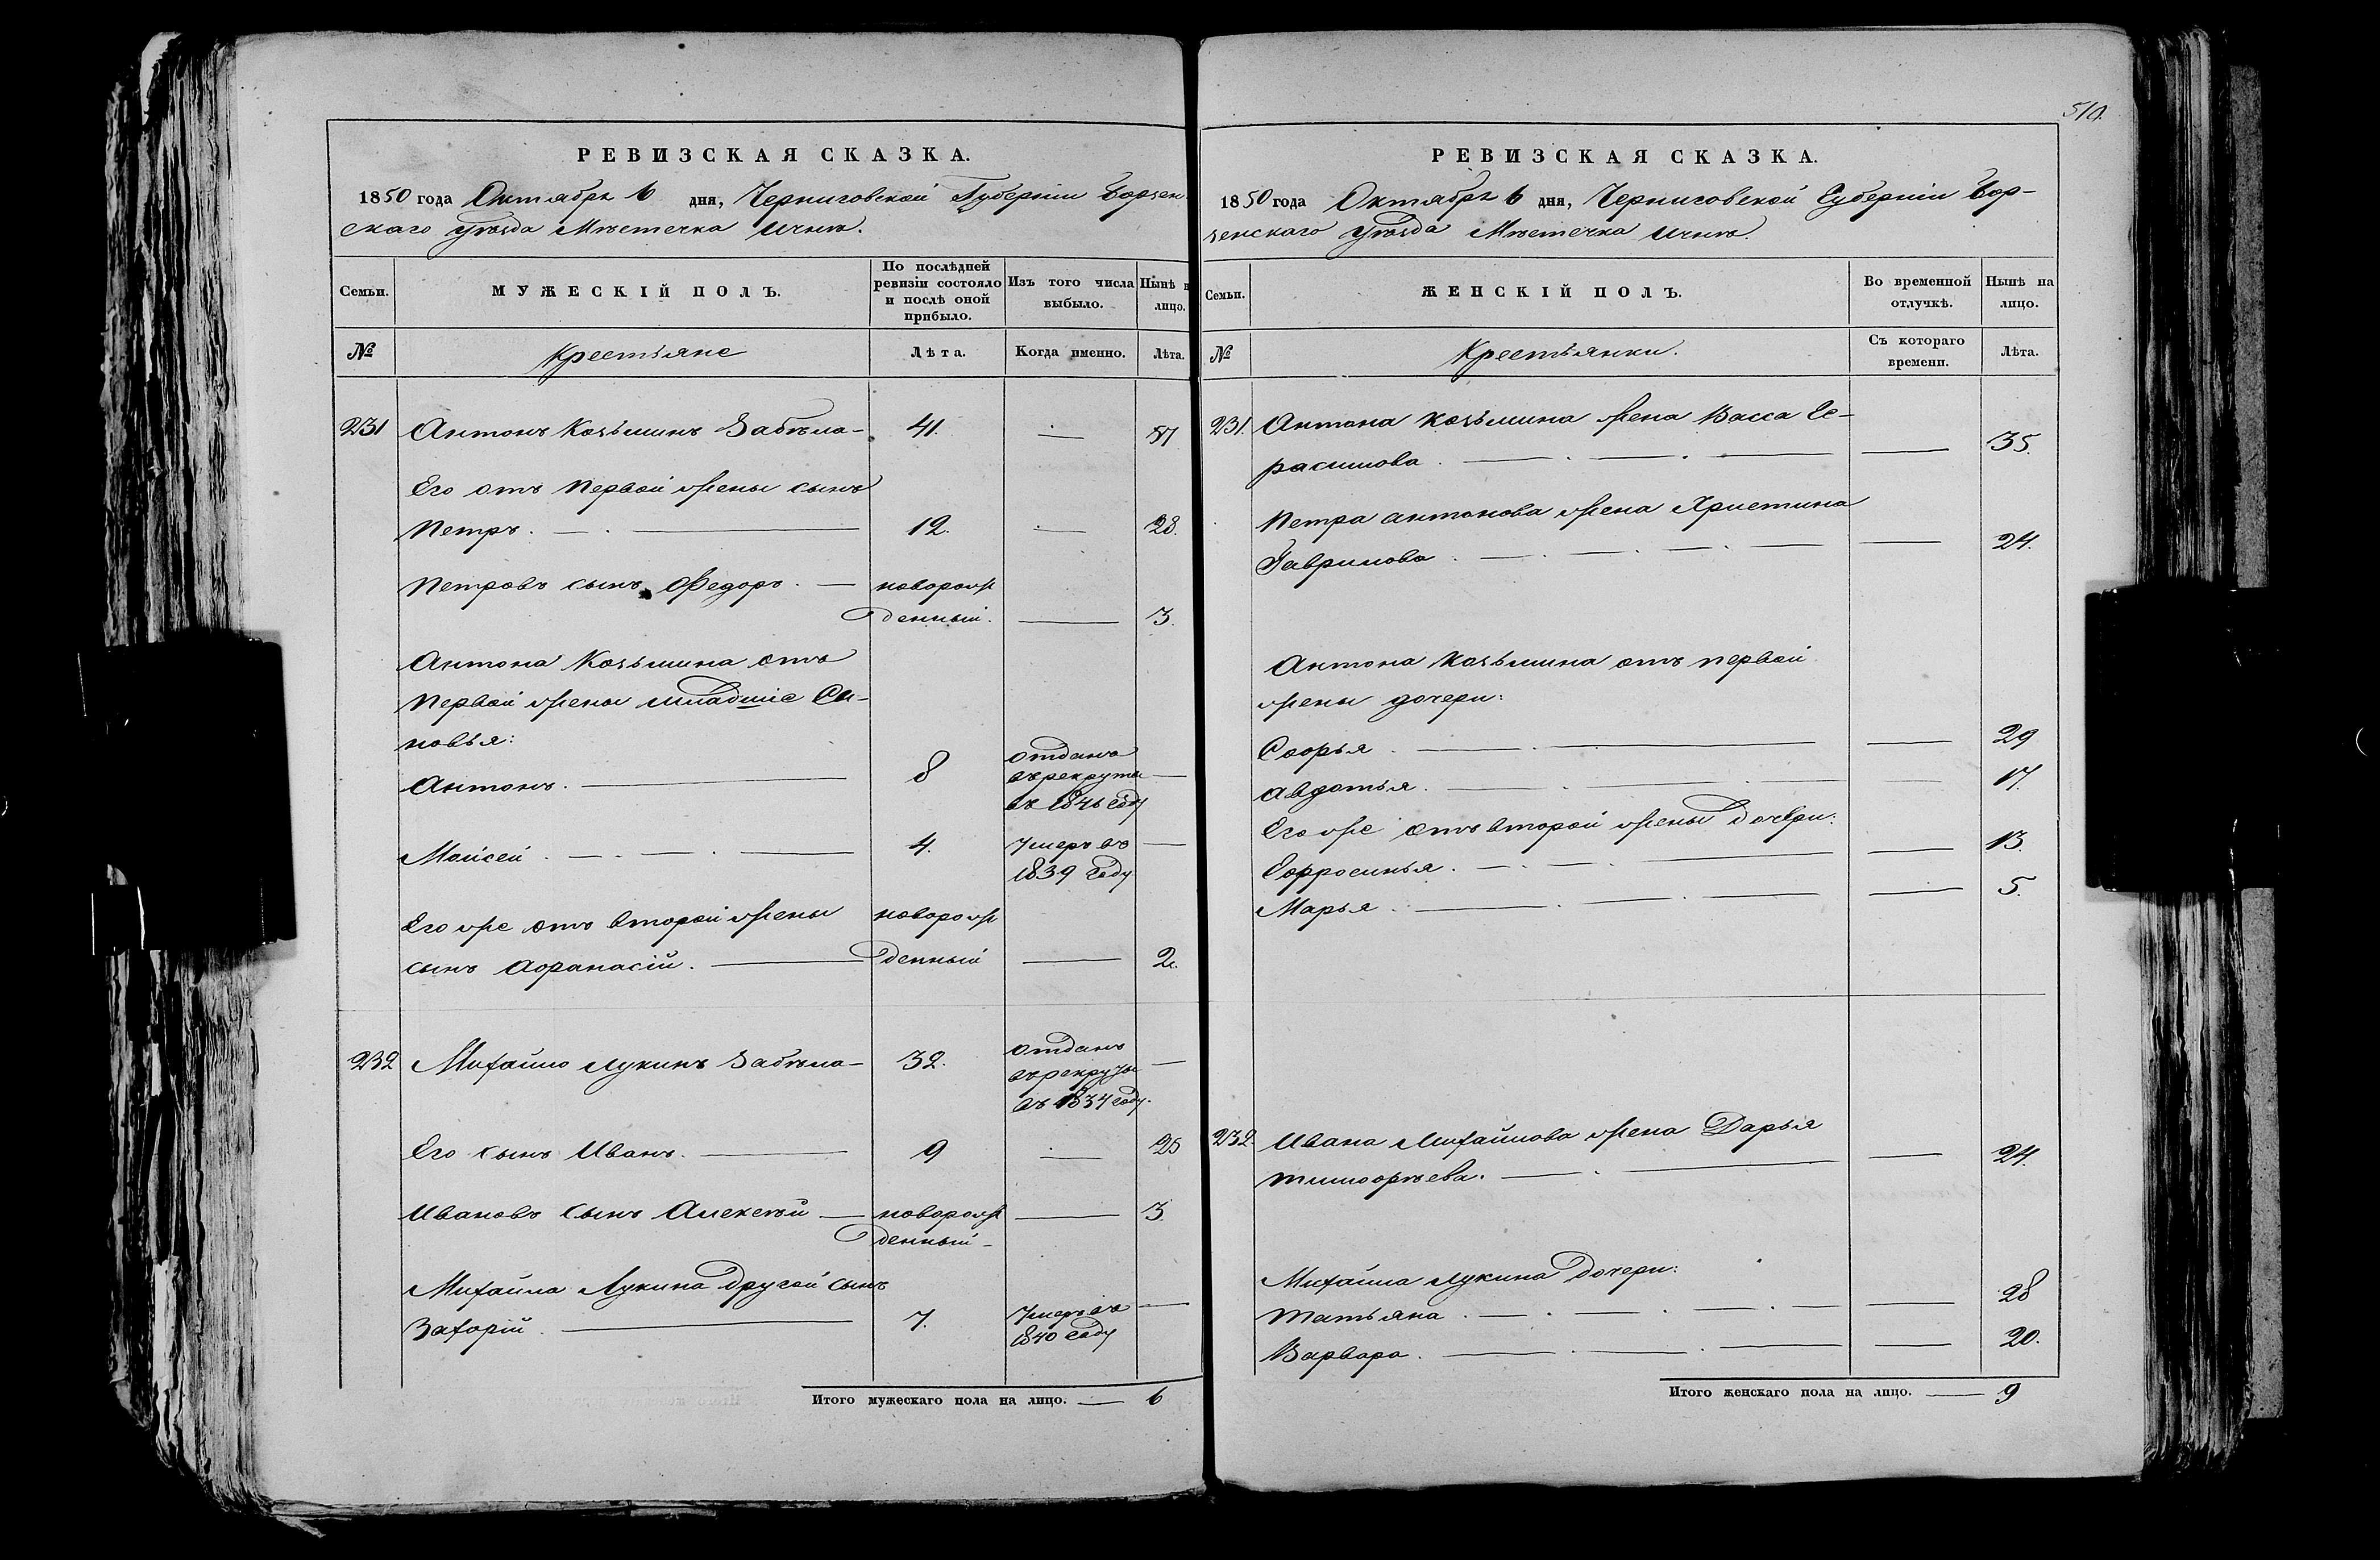 510.
РЕВИЗСКАЯ СКАЗКА.
1850 года Октября 6 дня, Черниговской Губерніи Борзен-
скаго Уѣзда Мѣстечка Ични.
Семьи.
МУЖЕСКІЙ ПОЛЪ.
По послѣдней ревизіи состояло и послѣ оной прибыло.
Изъ того числа выбыло.
Нынѣ н лицо.
№
Крестьяне
Лѣта.
Когда именно.
Лѣта.
231 Антонъ Козьминъ Забѣла 41. — 57
Его отъ первой жены сынъ
Петръ. — 12. — 28.
Петровъ сынъ Федоръ. — новорож
денный. — 3.
Антона Козьмина отъ
первой жены младшіе Сы-
новья:
Антонъ. — 8 отданъ
въ рекруты —
въ 1846 году
Моисей. — 4. Умеръ въ —
1839 году
Его же отъ второй жены новорож
сынъ Афанасій. — денный — 2.
232 Михайло Лукинъ Забѣла — 32. отданъ
въ рекруты —
въ 1834 году.
Его сынъ Иванъ. — 9 — 25
Ивановъ сынъ Алексѣй — новорож — 3.
денный —
Михаила Лукина другой сынъ
Захорій. — 7. Умеръ въ —
1840 году
Итого мужескаго пола на лицо. — 6
РЕВИЗСКАЯ СКАЗКА.
1850 года Октября 6 дня, Черниговской Губерніи Бор-
зенскаго Уѣзда Мѣстечка Ични.
Семьи.
ЖЕНСКІЙ ПОЛЪ.
Во временной отлучкѣ.
Нынѣ на лицо.
№
Крестьянки.
Съ котораго времени.
Лѣта.
231. Антона Козьмина жена Васса Ге-
расимова. — 35.
Петра Антонова жена Христина
Гаврилова. — 24.
Антона Козьмина отъ первой
жены дочери:
Софья. — 29
Авдотья. — 17.
Его же отъ второй жены дочери:
Ефросинья. — 13.
Марья. — 5.
232. Ивана Михайлова жена Дарья
Тимофѣева. — 24.
Михаила Лукина дочери:
Татьяна. — 28
Варвара. — 20.
Итого женскаго пола на лицо. — 9